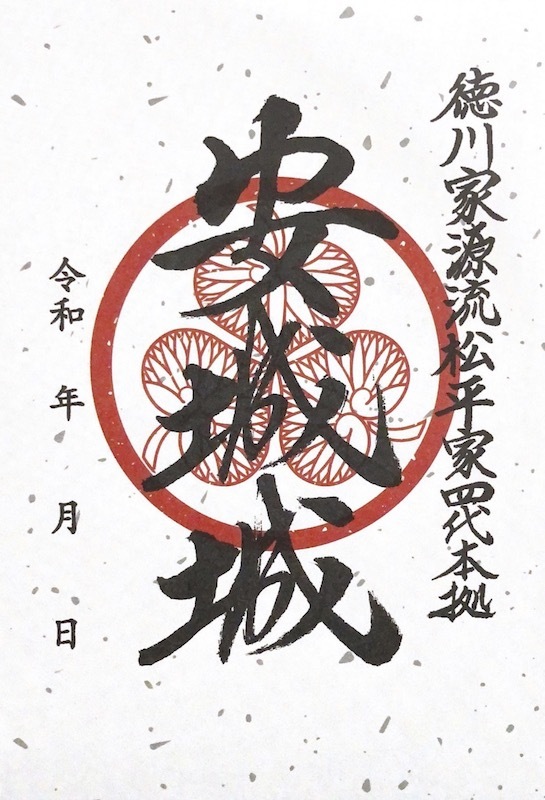 徳川家源流松平家四代本拠
安城城
令和 年 月 日